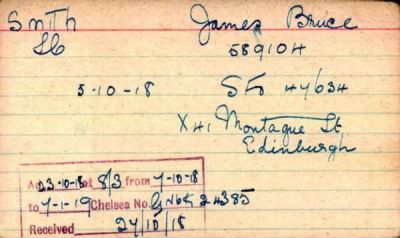 Smith James Bruce
Sb 589104
5.10-18 SS 44634
X 41 Montague St
Edinburgh
Ad 23.10.18 at 8/3 from 7-10-18
to 7-1-19 Chelsea No. 24385
Received 24/10/18